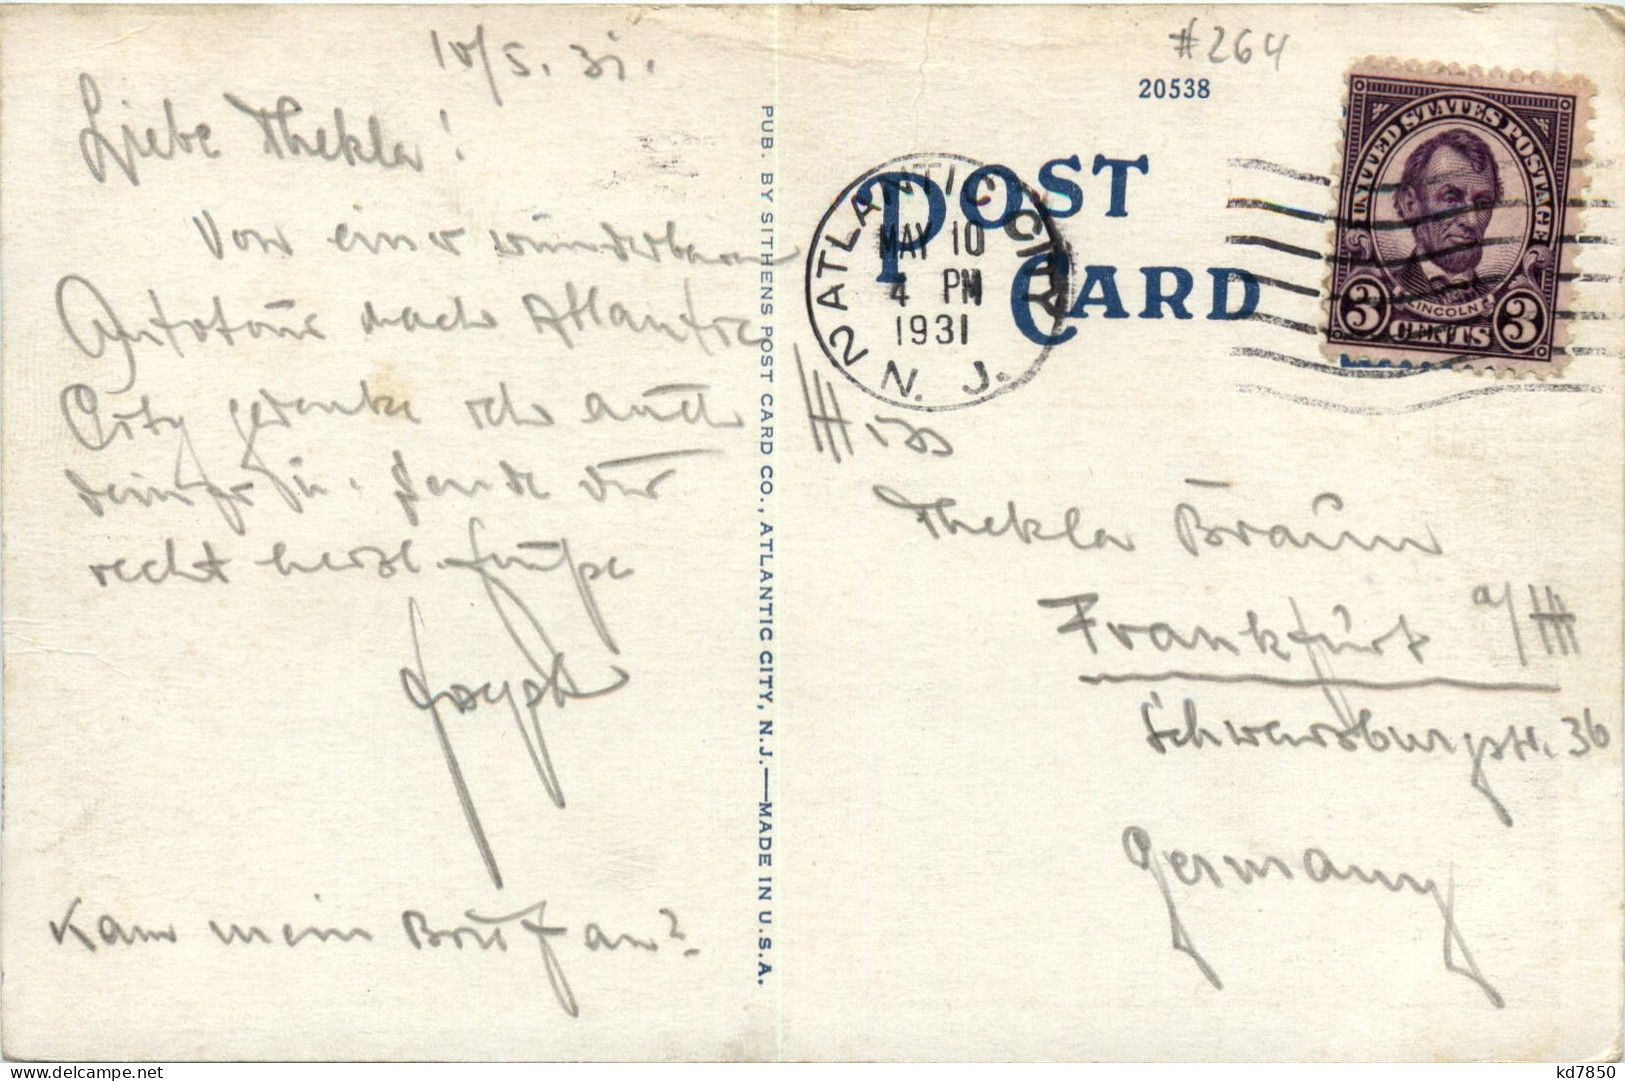 10/5. 31.
Liebe Thekla!
Von einer wunderbaren
Autotour nach Atlantic
City gedenke ich auch
deiner u. sende Dir
recht herzl. Grüße
Joseph
Kam mein Brief an?
PUB. BY SITHENS POST CARD CO., ATLANTIC CITY, N.J.—MADE IN U.S.A.
#264
20538
POST
CARD
ATLANTIC CITY
2
MAY 10
4 PM
1931
N. J.
UNITED STATES POSTAGE
LINCOLN
3 CENTS 3
Miss
Thekla Braun
Frankfurt a/M
Schwarzburgstr. 36
Germany
kd7850